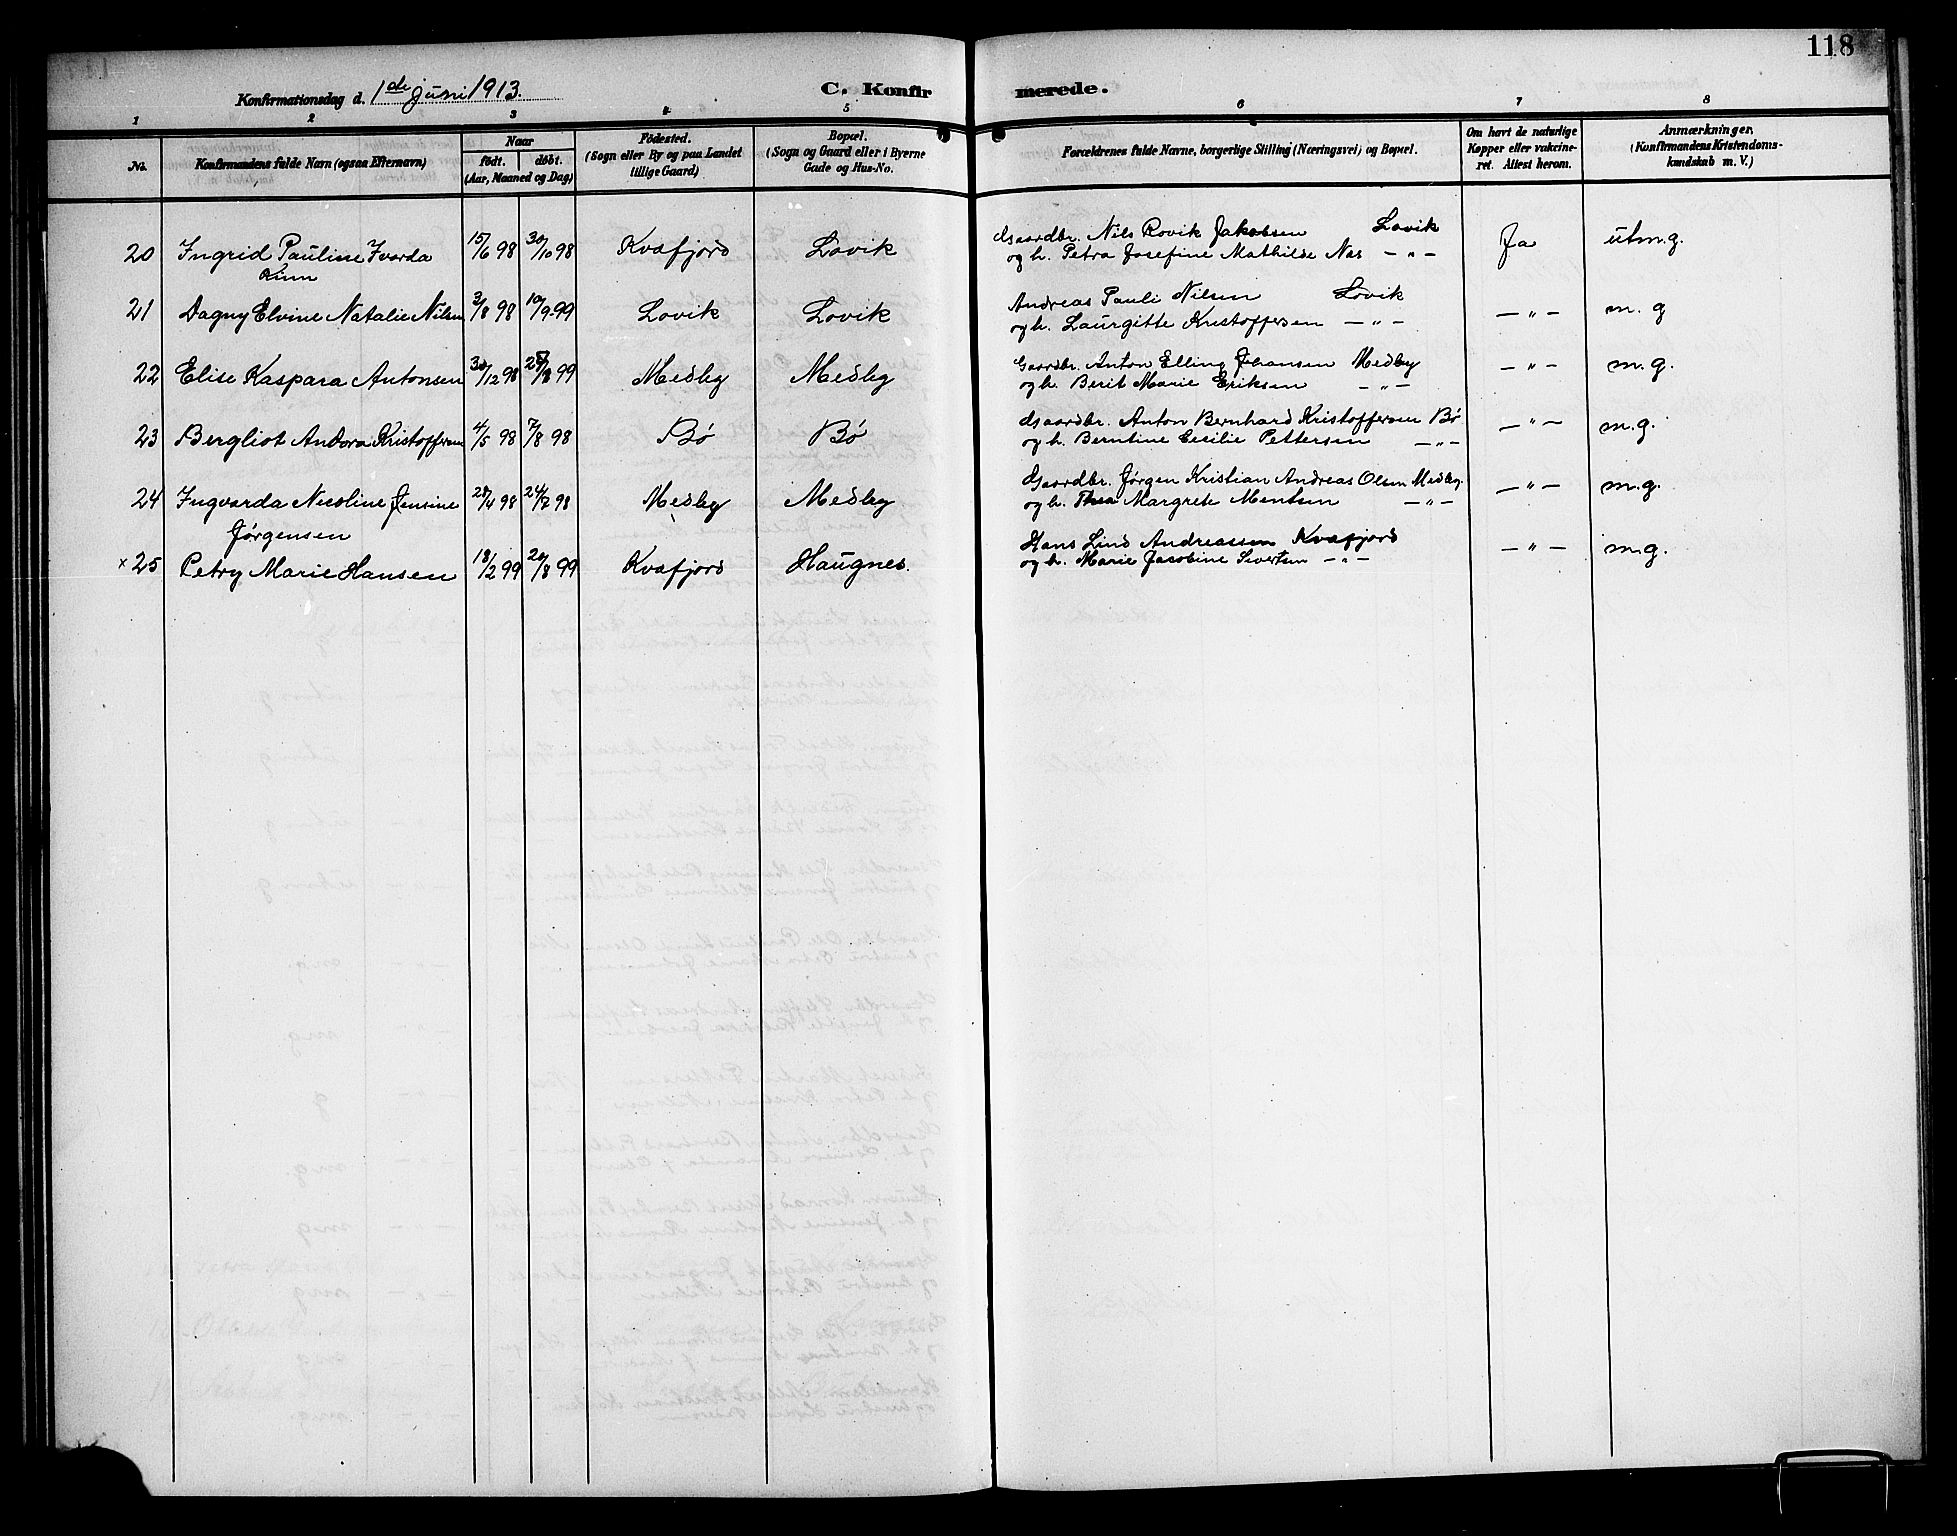 118
Konfirmationsdag d. 1ste Juni 1913.
C. Konfirmerede.
1 2 3 4 5 6 7 8
No.
Konfirmandens fulde Navn (ogsaa Efternavn)
Naar
født. døbt.
(Aar, Maaned og Dag)
Fødested.
(Sogn eller By og paa Landet
tillige Gaard)
Bopæl.
(Sogn og Gaard eller i Byerne
Gade og Hus-No.
Forældrenes fulde Navne, borgerlige Stilling (Næringsvei) og Bopæl.
Om havt de naturlige
Kopper eller vakcine-
ret. Attest herom.
Anmærkninger.
(Konfirmandens Kristendoms-
kundskab m. V.)
20 Ingrid Pauline Ivarda 15/6 98 30/10 98 Kvæfjord Lovik Gaardbr. Nils Rovik Jakobsen Lovik Ja utm.g.
og h. Petra Josefine Mathilde Nas — " —
21 Dagny Elvine Natalie Nilsen 3/8 98 10/9 99 Lovik Lovik Andreas Pauli Nilsen Lovik — " — m.g
og h. Laurgitte Kristoffersen — " —
22 Elise Kaspara Antonsen 30/12 98 /8 99 Medby Medby Gaardbr. Anton Elling Johansen Medby — " — m.g.
og h. Berit Marie Eriksen — " —
23 Bergliot Andora Kristoffersen 4/5 98 7/8 98 Bø Bø Gaardbr. Anton Bernhard Kristoffersen Bø — " — m.g.
og h. Berntine Cecilie Pettersen — " —
24 Ingvarda Nicoline Jensine 28/4 98 24/7 98 Medby Medby Gaardbr. Jørgen Kristian Andreas Olsen Medby — " — m.g.
Jørgensen og h. Thea Margrete Mentsen — " —
× 25 Petry Marie Hansen 18/2 99 20/8 99 Kvæfjord Haugnes. Hans Lind Andreassen Kvæfjord — " — m.g.
og h. Marie Jacobine Sivertsen — " —